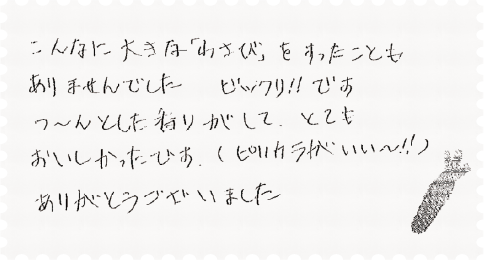 こんなに大きな「わさび」をすったことも
ありませんでした ビックリ!!です
つ〜んとした香りがして、とても
おいしかったです。(ピリカラがいい〜!!)
ありがとうございました